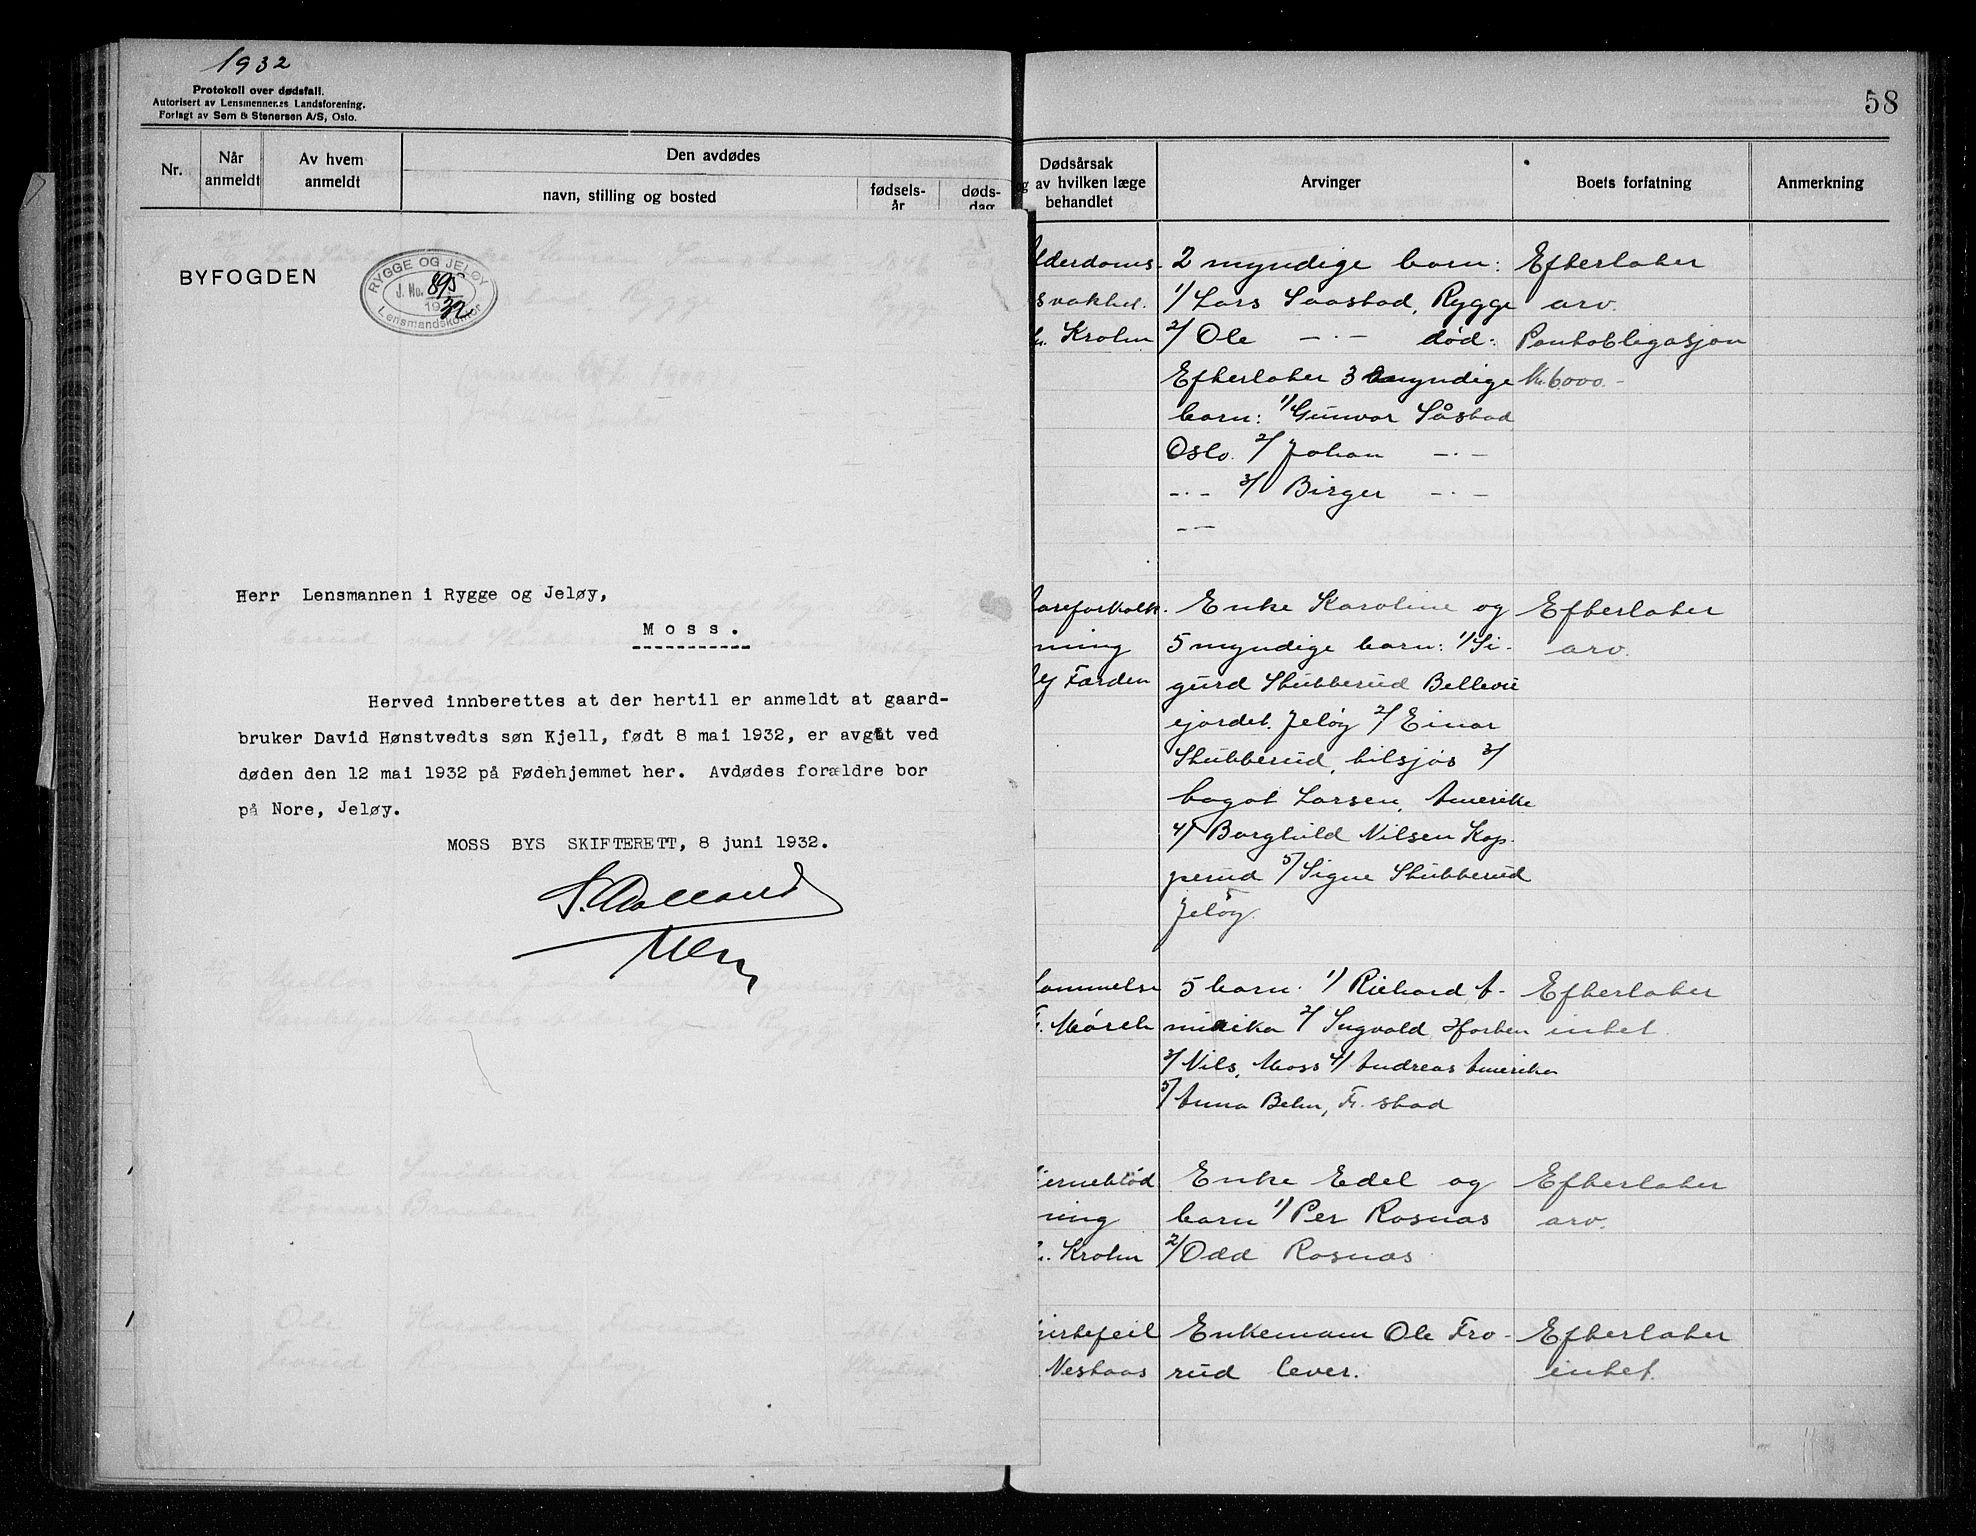 1932
Protokoll over dødsfall.
Autorisert av Lensmennenes Landsforening.
Forlagt av Sem & Stenersen A/S, Oslo.
Nr.
Når anmeldt
Av hvem anmeldt
Den avdødes
navn, stilling og bosted
fødsels-
år
døds-
dag
BYFOGDEN
RYGGE OG JELØY
J. No. 895
1932
Lensmandskontor
Herr Lensmannen i Rygge og Jeløy,
Moss.
Herved innberettes at der hertil er anmeldt at gaard-
bruker David Hønstvedts søn Kjell, født 8 mai 1932, er avgåt ved
døden den 12 mai 1932 på Fødehjemmet her. Avdødes forældre bor
på Nore, Jeløy.
MOSS BYS SKIFTERETT, 8 juni 1932.
58
Dødsårsak
og av hvilken læge
behandlet
Arvinger
Boets forfatning
Anmerkning
lderdoms-
svakhet.
Krohn
2 myndige barn:
1/ Lars Saastad, Rygge
2/ Ole -"- død:
Efterlater 3 myndige
barn: 1/ Gunvor Såstad
Oslo. 2/ Johan -"-
-"- 3/ Birger -"-
-"-
Efterlater
arv.
Pantobligasjon
Kr. 6000.-
areforkalk-
ning
Farden
Enke Karoline og
5 myndige barn: 1/ Si-
gurd Stubberud Bellevue
ejordet. Jeløy 2/ Einar
Stubberud, tilsjøs 3/
Dagot Larsen, Amerika
4/ Borghild Nilsen Kop-
perud 5/ Signe Stubberud
Jeløy.
Efterlater
arv.
ammelse
Mørch
5 barn. 1/ Richard A-
merika 2/ Ingvald Horten
3/ Nils, Moss 4/ Andreas Amerika
5/ Anna Behn, Fr. stad
Efterlater
intet.
jerneblød
ning
Krohn
Enke Edel og
barn 1/ Per Rosnæs
2/ Odd Rosnæs
Efterlater
arv.
jertefeil
Nestaas
Enkemann Ole Fro-
rud lever.
Efterlater
intet.